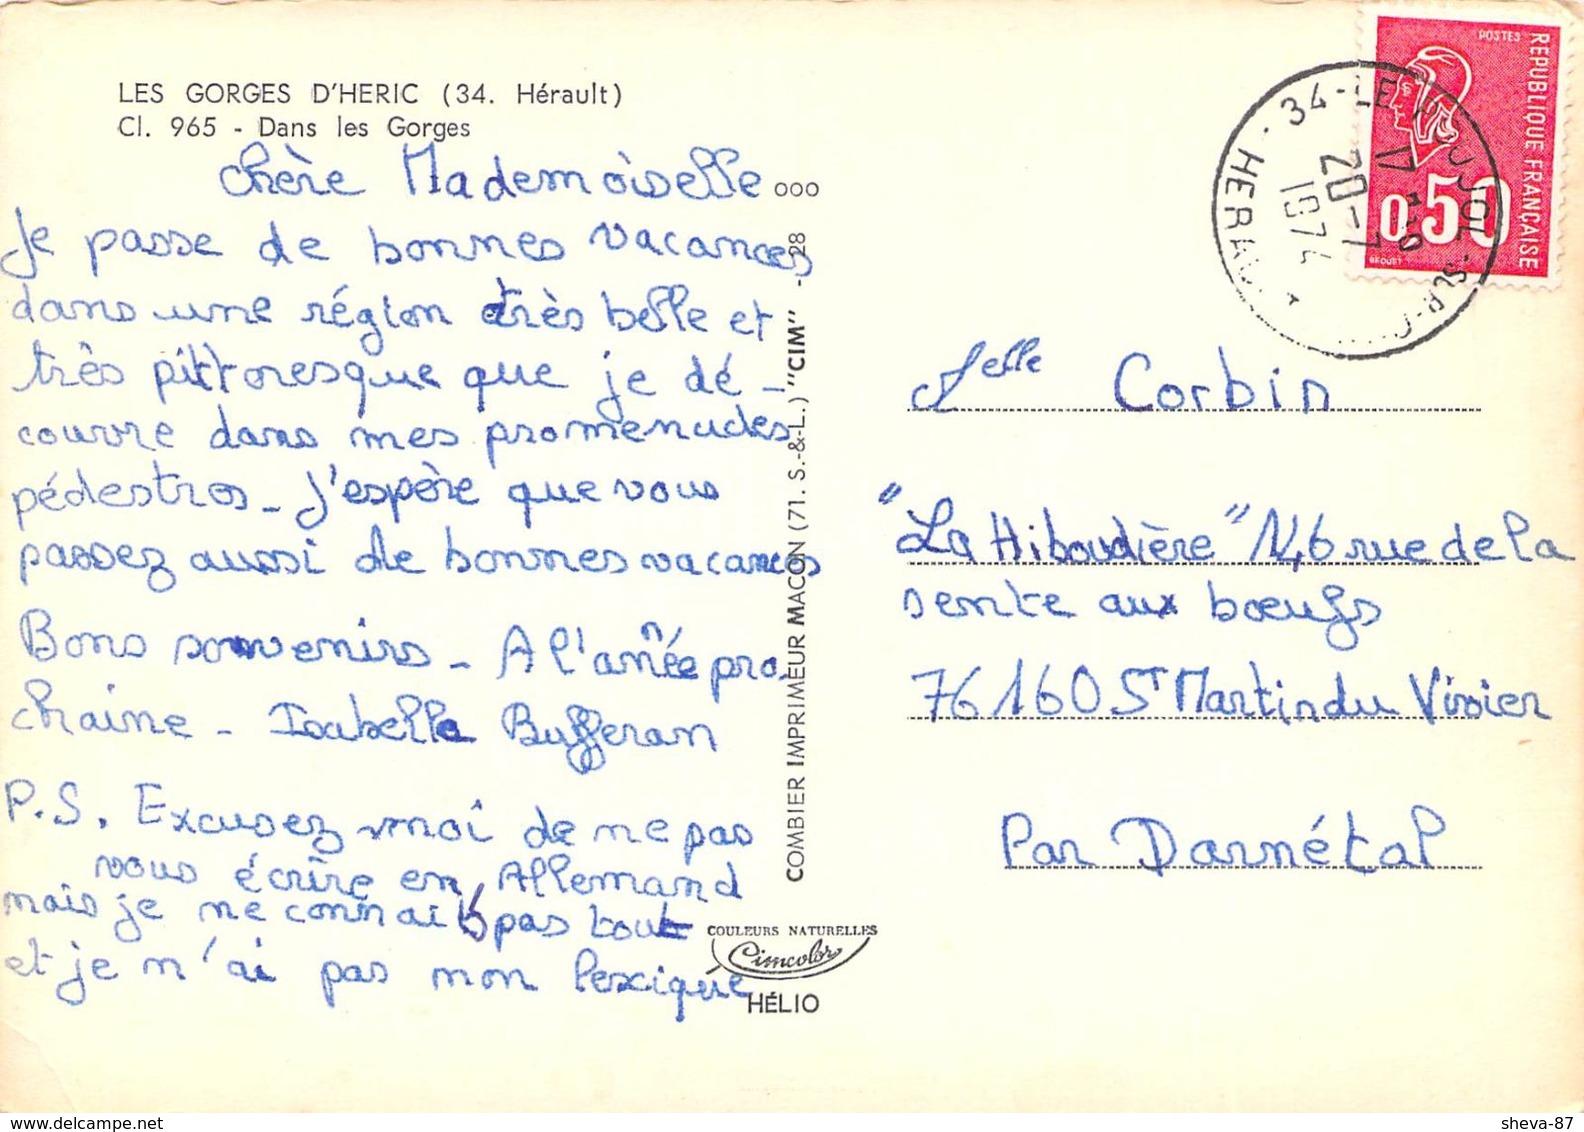 LES GORGES D'HERIC (34. Hérault)
Cl. 965 - Dans les Gorges
Chère Mademoiselle
Je passe de bonnes vacances
dans une région très belle et
très pittoresque que je dé-
couvre dans mes promenades
pédestres_ J'espère que vous
passez aussi de bonnes vacances
Bons souvenirs_ A l'année pro-
chaine_ Isabelle Bufferan
P.S. Excusez-moi de ne pas
vous écrire en Allemand
mais je ne connais pas tout
et je n'ai pas mon lexique
COMBIER IMPRIMEUR MACON (71. S.-&-L.) "CIM" - 28
COULEURS NATURELLES
Cimcolor
HÉLIO
POSTES
REPUBLIQUE FRANÇAISE
0,50
BEQUET
34-LE POUJOL-SUR-
HERAULT
17
20-7
1974
Melle Corbin
"La Hiboudière" 146 rue de la
sente aux bœufs
76160 ST Martin du Vivier
Par Darnétal
sheva-87